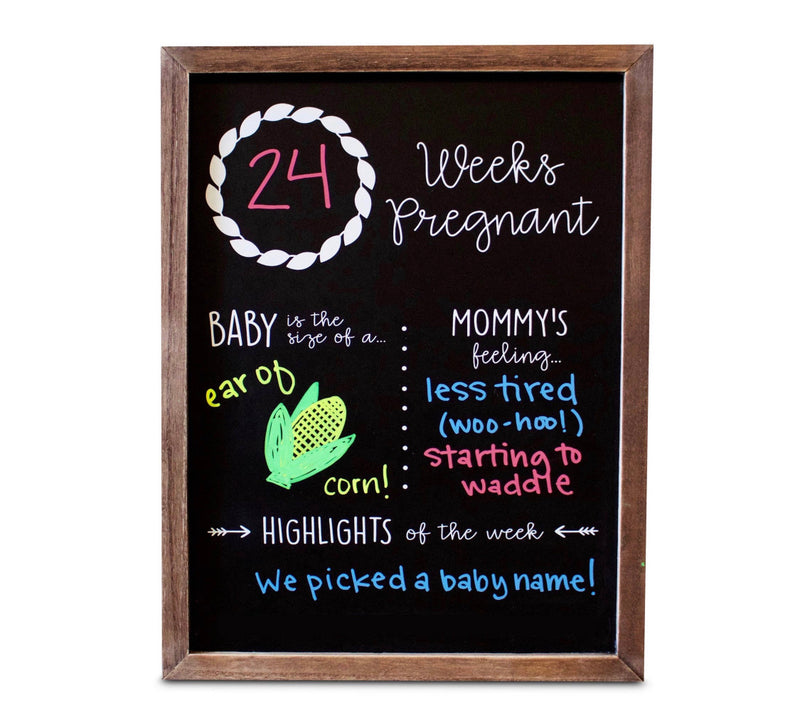 24
Weeks
Pregnant
BABY is the
size of a...
ear of
corn!
MOMMY'S
feeling...
less tired
(woo-hoo!)
starting to
waddle
HIGHLIGHTS of the week
We picked a baby name!